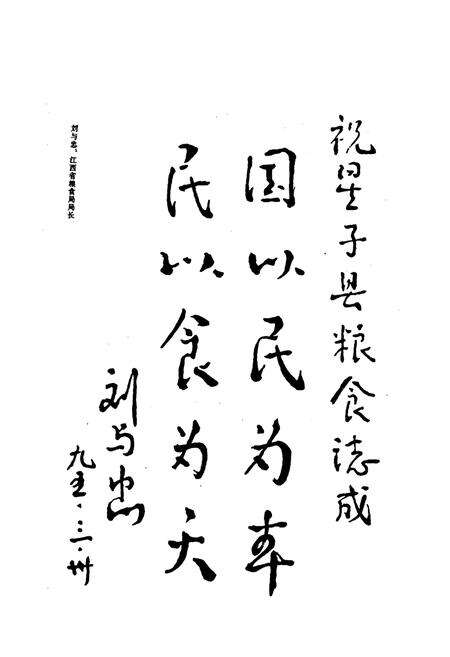 祝星子县粮食志成
国以民为本
民以食为天
刘与忠
九五·三·卅
刘与忠:江西省粮食局局长